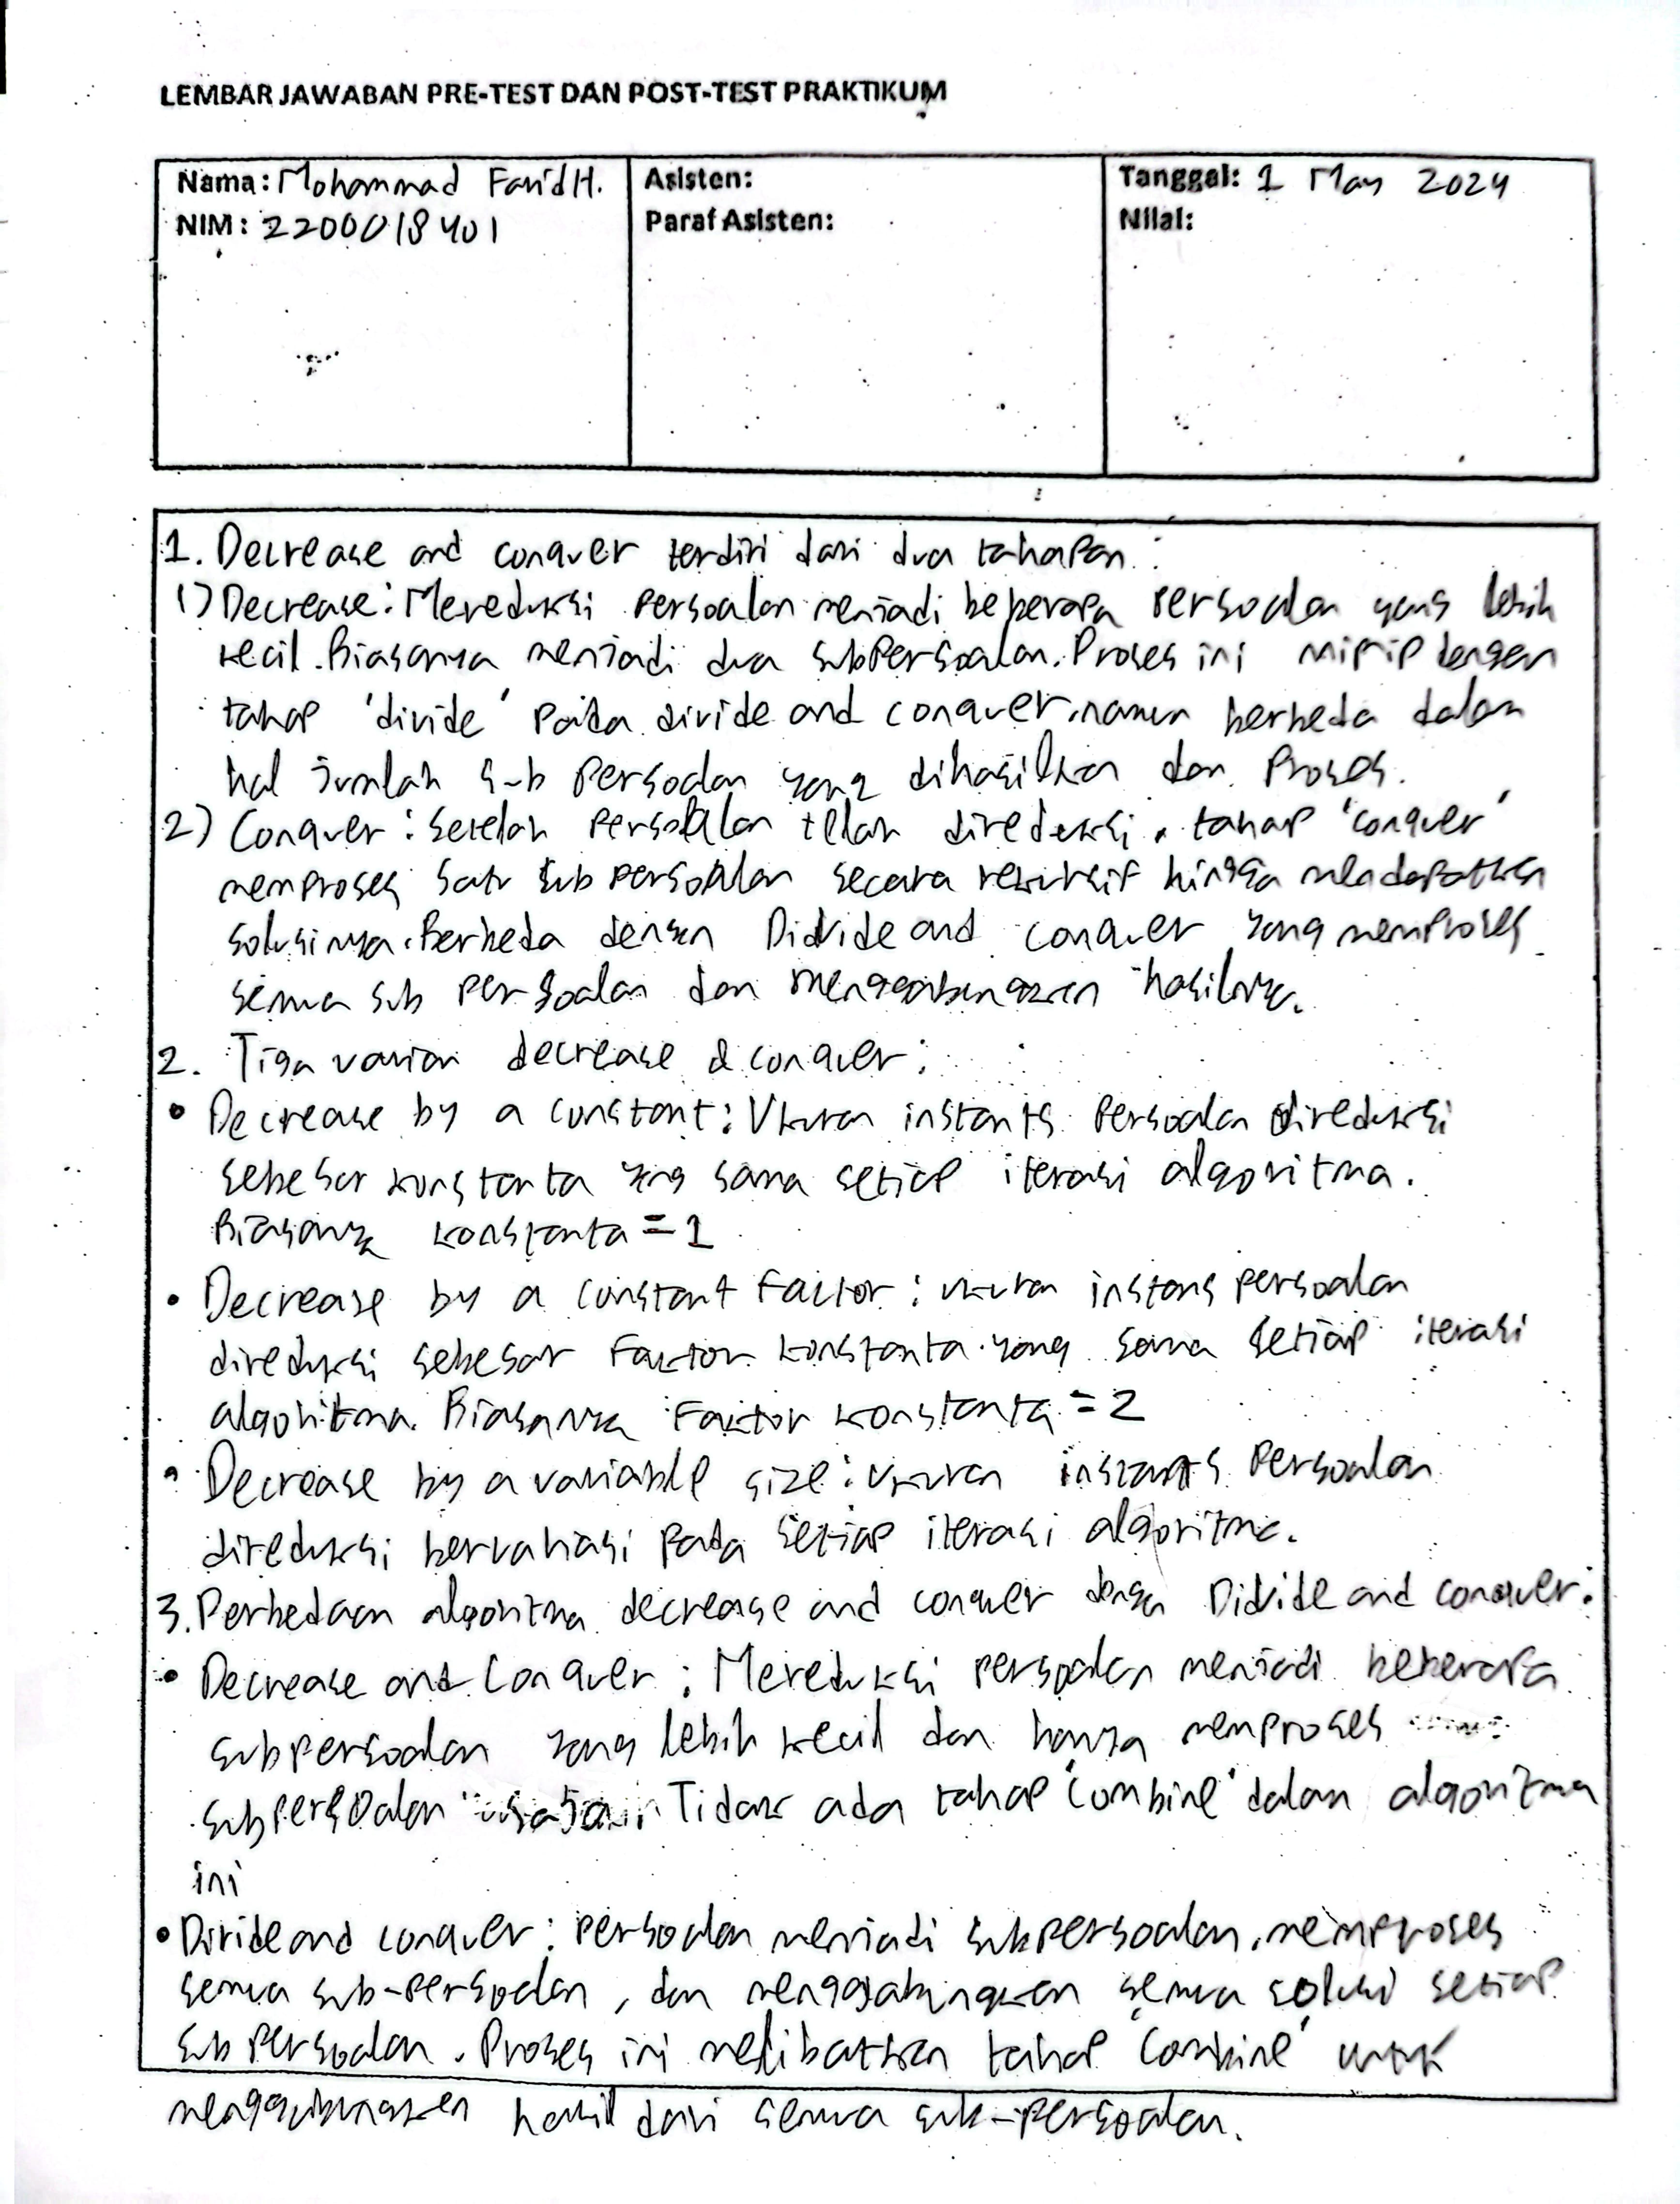 LEMBAR JAWABAN PRE-TEST DAN POST-TEST PRAKTIKUM
Nama: Mohammad Farid H.
NIM: 2200018401
Asisten:
Paraf Asisten:
Tanggal: 1 May 2024
Nilai:
1. Decrease and conquer terdiri dari dua tahapan :
1) Decrease : Mereduksi persoalan menjadi beberapa persoalan yang lebih
kecil. Biasanya menjadi dua subpersoalan. Proses ini mirip dengan
tahap 'divide' pada divide and conquer, namun berbeda dalam
hal jumlah sub persoalan yang dihasilkan dan proses.
2) Conquer : Setelah persoalan telah direduksi, tahap 'conquer'
memproses satu sub persoalan secara rekursif hingga mendapatkan
solusinya. Berbeda dengan Divide and conquer yang memproses
semua sub persoalan dan menggabungkan hasilnya.
2. Tiga varian decrease & conquer :
• Decrease by a constant : Ukuran instans persoalan direduksi
sebesar konstanta yang sama setiap iterasi algoritma.
Biasanya konstanta = 1
• Decrease by a constant Factor : ukuran instans persoalan
direduksi sebesar Faktor konstanta yang sama setiap iterasi
algoritma. Biasanya Faktor konstanta = 2
• Decrease by a variable size : ukuran instans persoalan
direduksi bervariasi pada setiap iterasi algoritma.
3. Perbedaan algoritma decrease and conquer dengan Divide and conquer :
• Decrease and Conquer : Mereduksi persoalan menjadi beberapa
subpersoalan yang lebih kecil dan hanya memproses
subpersoalan saja. Tidak ada tahap 'combine' dalam algoritma
ini
• Divide and conquer : persoalan menjadi subpersoalan, memproses
semua sub-persoalan, dan menggabungkan semua solusi setiap
sub persoalan. Proses ini melibatkan tahap 'Combine' untuk
menggabungkan hasil dari semua sub-persoalan.